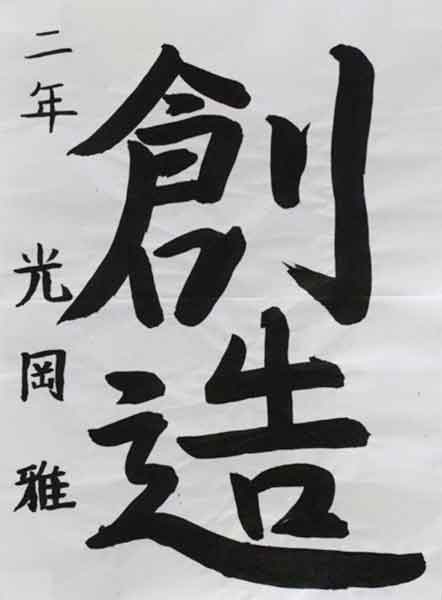 創造
二年 光岡雅